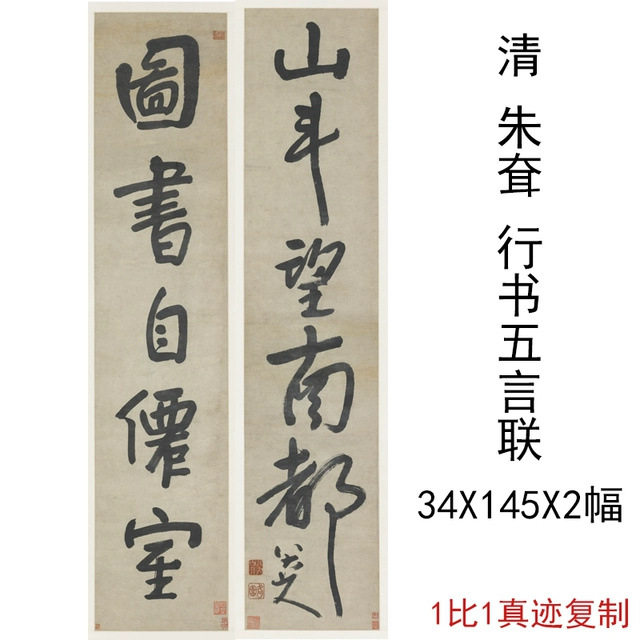 圖書自僊室
山斗望南都
八大
清 朱耷 行书五言联
34X145X2幅
1比1真迹复制